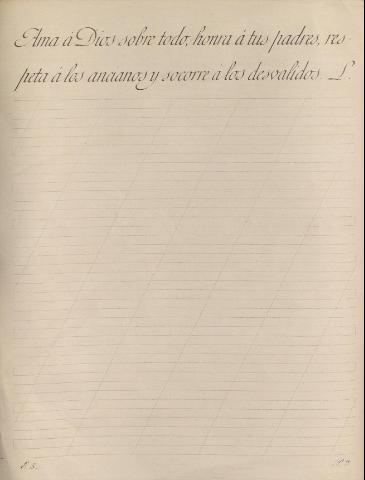 Ama á Dios sobre todo, honra á tus padres, res-
peta á los ancianos y socorre á los desvalidos. L.